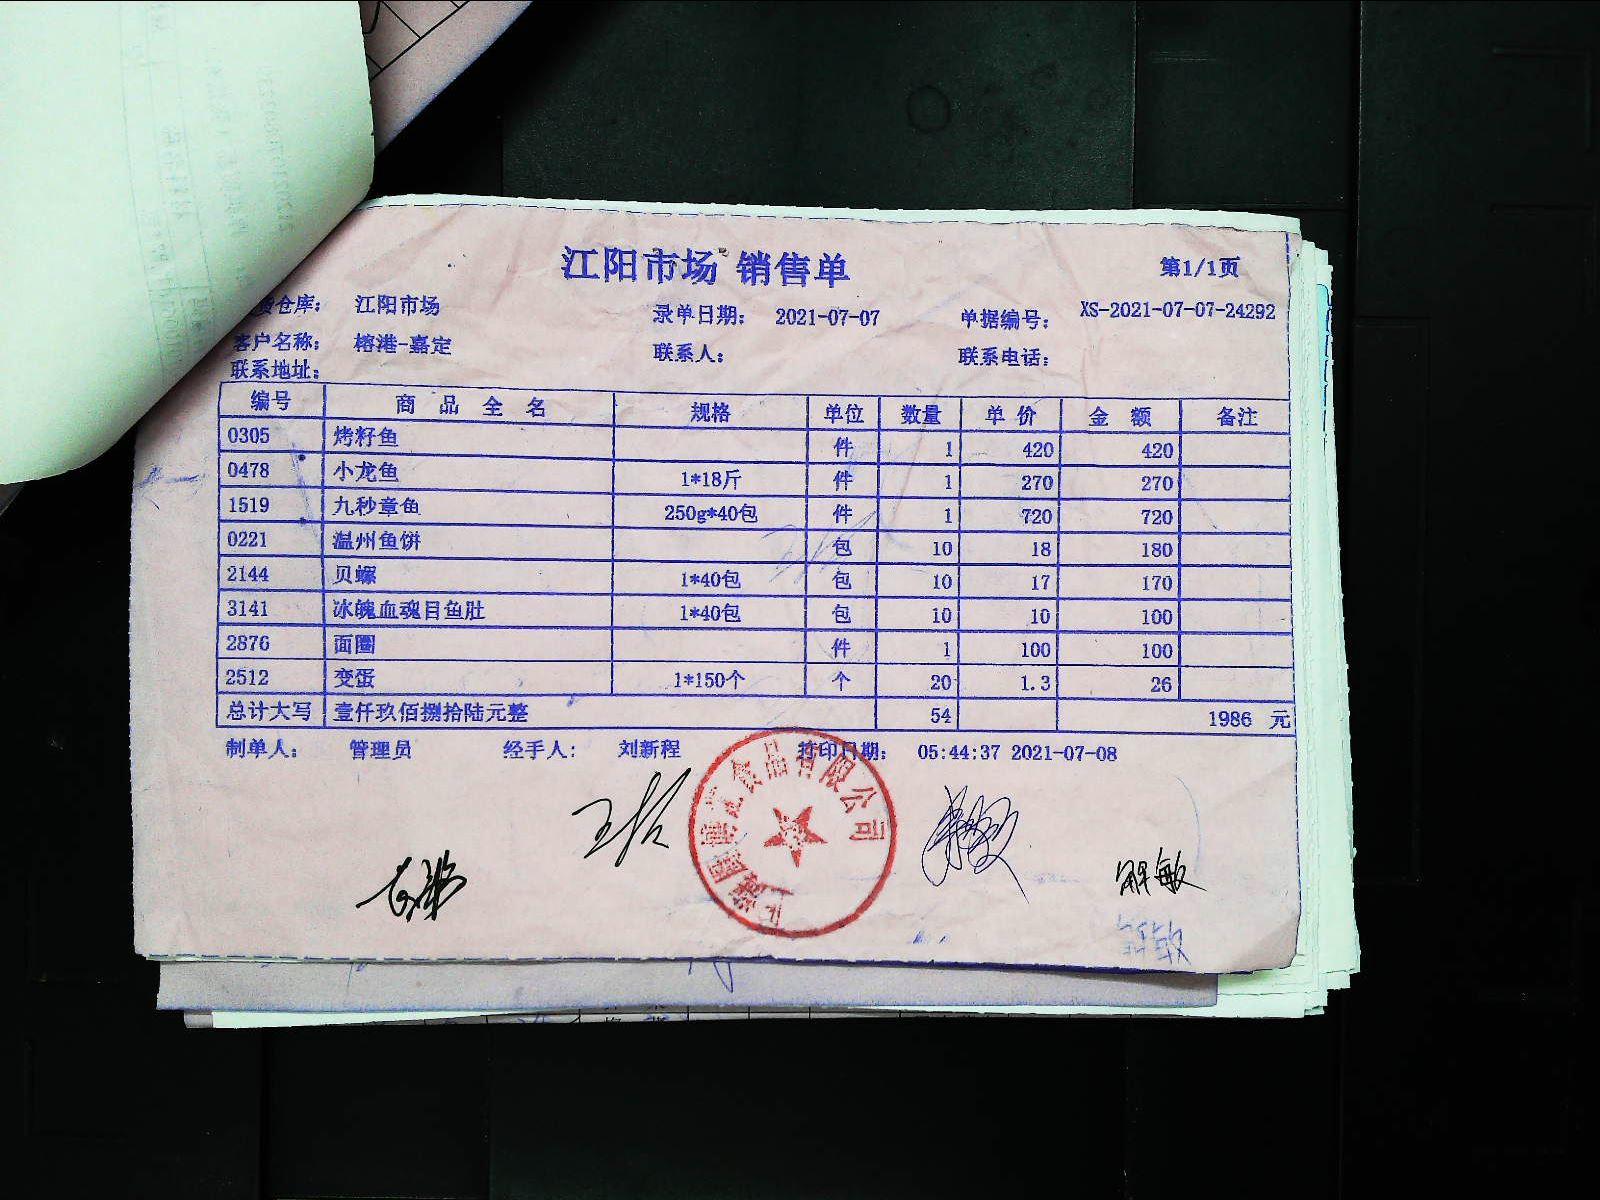 江阳市场 销售单
第1/1页
货仓库： 江阳市场 录单日期： 2021-07-07 单据编号： XS-2021-07-07-24292
客户名称： 榕港-嘉定 联系人： 联系电话：
联系地址：
编号 商品全名 规格 单位 数量 单价 金额 备注
0305 烤籽鱼 件 1 420 420
0478 小龙鱼 1*18斤 件 1 270 270
1519 九秒章鱼 250g*40包 件 1 720 720
0221 温州鱼饼 包 10 18 180
2144 贝螺 1*40包 包 10 17 170
3141 冰魄血魂目鱼肚 1*40包 包 10 10 100
2876 面圈 件 1 100 100
2512 变蛋 1*150个 个 20 1.3 26
总计大写 壹仟玖佰捌拾陆元整 54 1986 元
制单人： 管理员 经手人： 刘新程 打印日期： 05:44:37 2021-07-08
食品有限公司
解敏